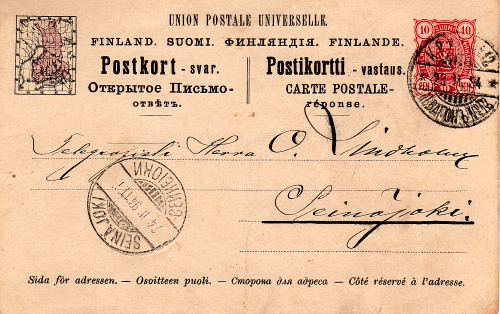 UNION POSTALE UNIVERSELLE.
FINLAND. SUOMI. ФИНЛЯНДІЯ. FINLANDE.
Postkort - svar. Postikortti - vastaus.
Открытое Письмо- CARTE POSTALE-
отвѣтъ. réponse.
10 10
PEN PEN
Telegrafist Herra O. Lindholm
Seinäjoki.
SEINÄJOKI
24 II 94
Sida för adressen. — Osoitteen puoli. — Сторона для адреса — Côté réservé à l'adresse.